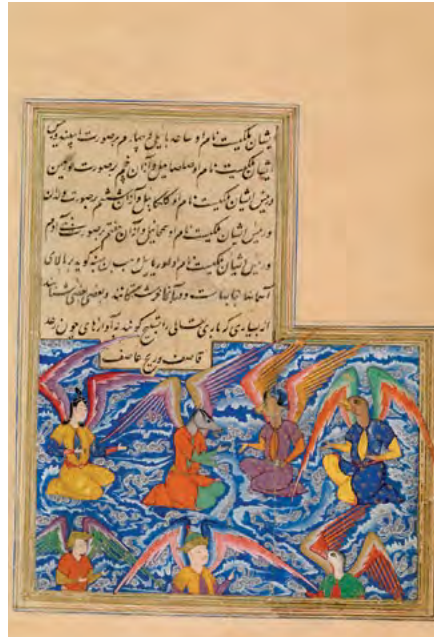 ایشان ملکیست نام او و چهارم بر صورت اسپند و رئیس
ایشان ملکیست نام او صلصاییل و از آن پنجم بر صورت حورعین
و رئیس ایشان ملکیست نام او کلکاییل و از آن ششم بر صورت ولدان
و رئیس ایشان ملکیست نام او سمحائیل و از آن هفتم بر صورت بنی آدم
و رئیس ایشان ملکیست نام او و وهب بن منبه گوید بر بالای
آسمانها حجابهاست و در آنها فرشتگانند و بعضی بعضی
از بسیاری که باری تعالی را تسبیح گویند به آوازهای چون رعد
قاصف و ریح عاصف